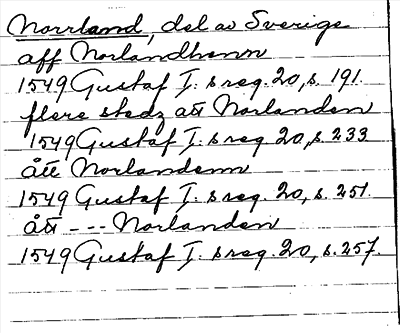 Norrland, del av Sverige
aff Norlandhenn
1549 Gustaf I:s reg. 20, s. 191.
flere stedz att Norlanden
1549 Gustaf I:s reg. 20, s. 233
ått Norlandenn
1549 Gustaf I:s reg. 20, s. 251.
ått --- Norlanden
1549 Gustaf I:s reg. 20, s. 257.